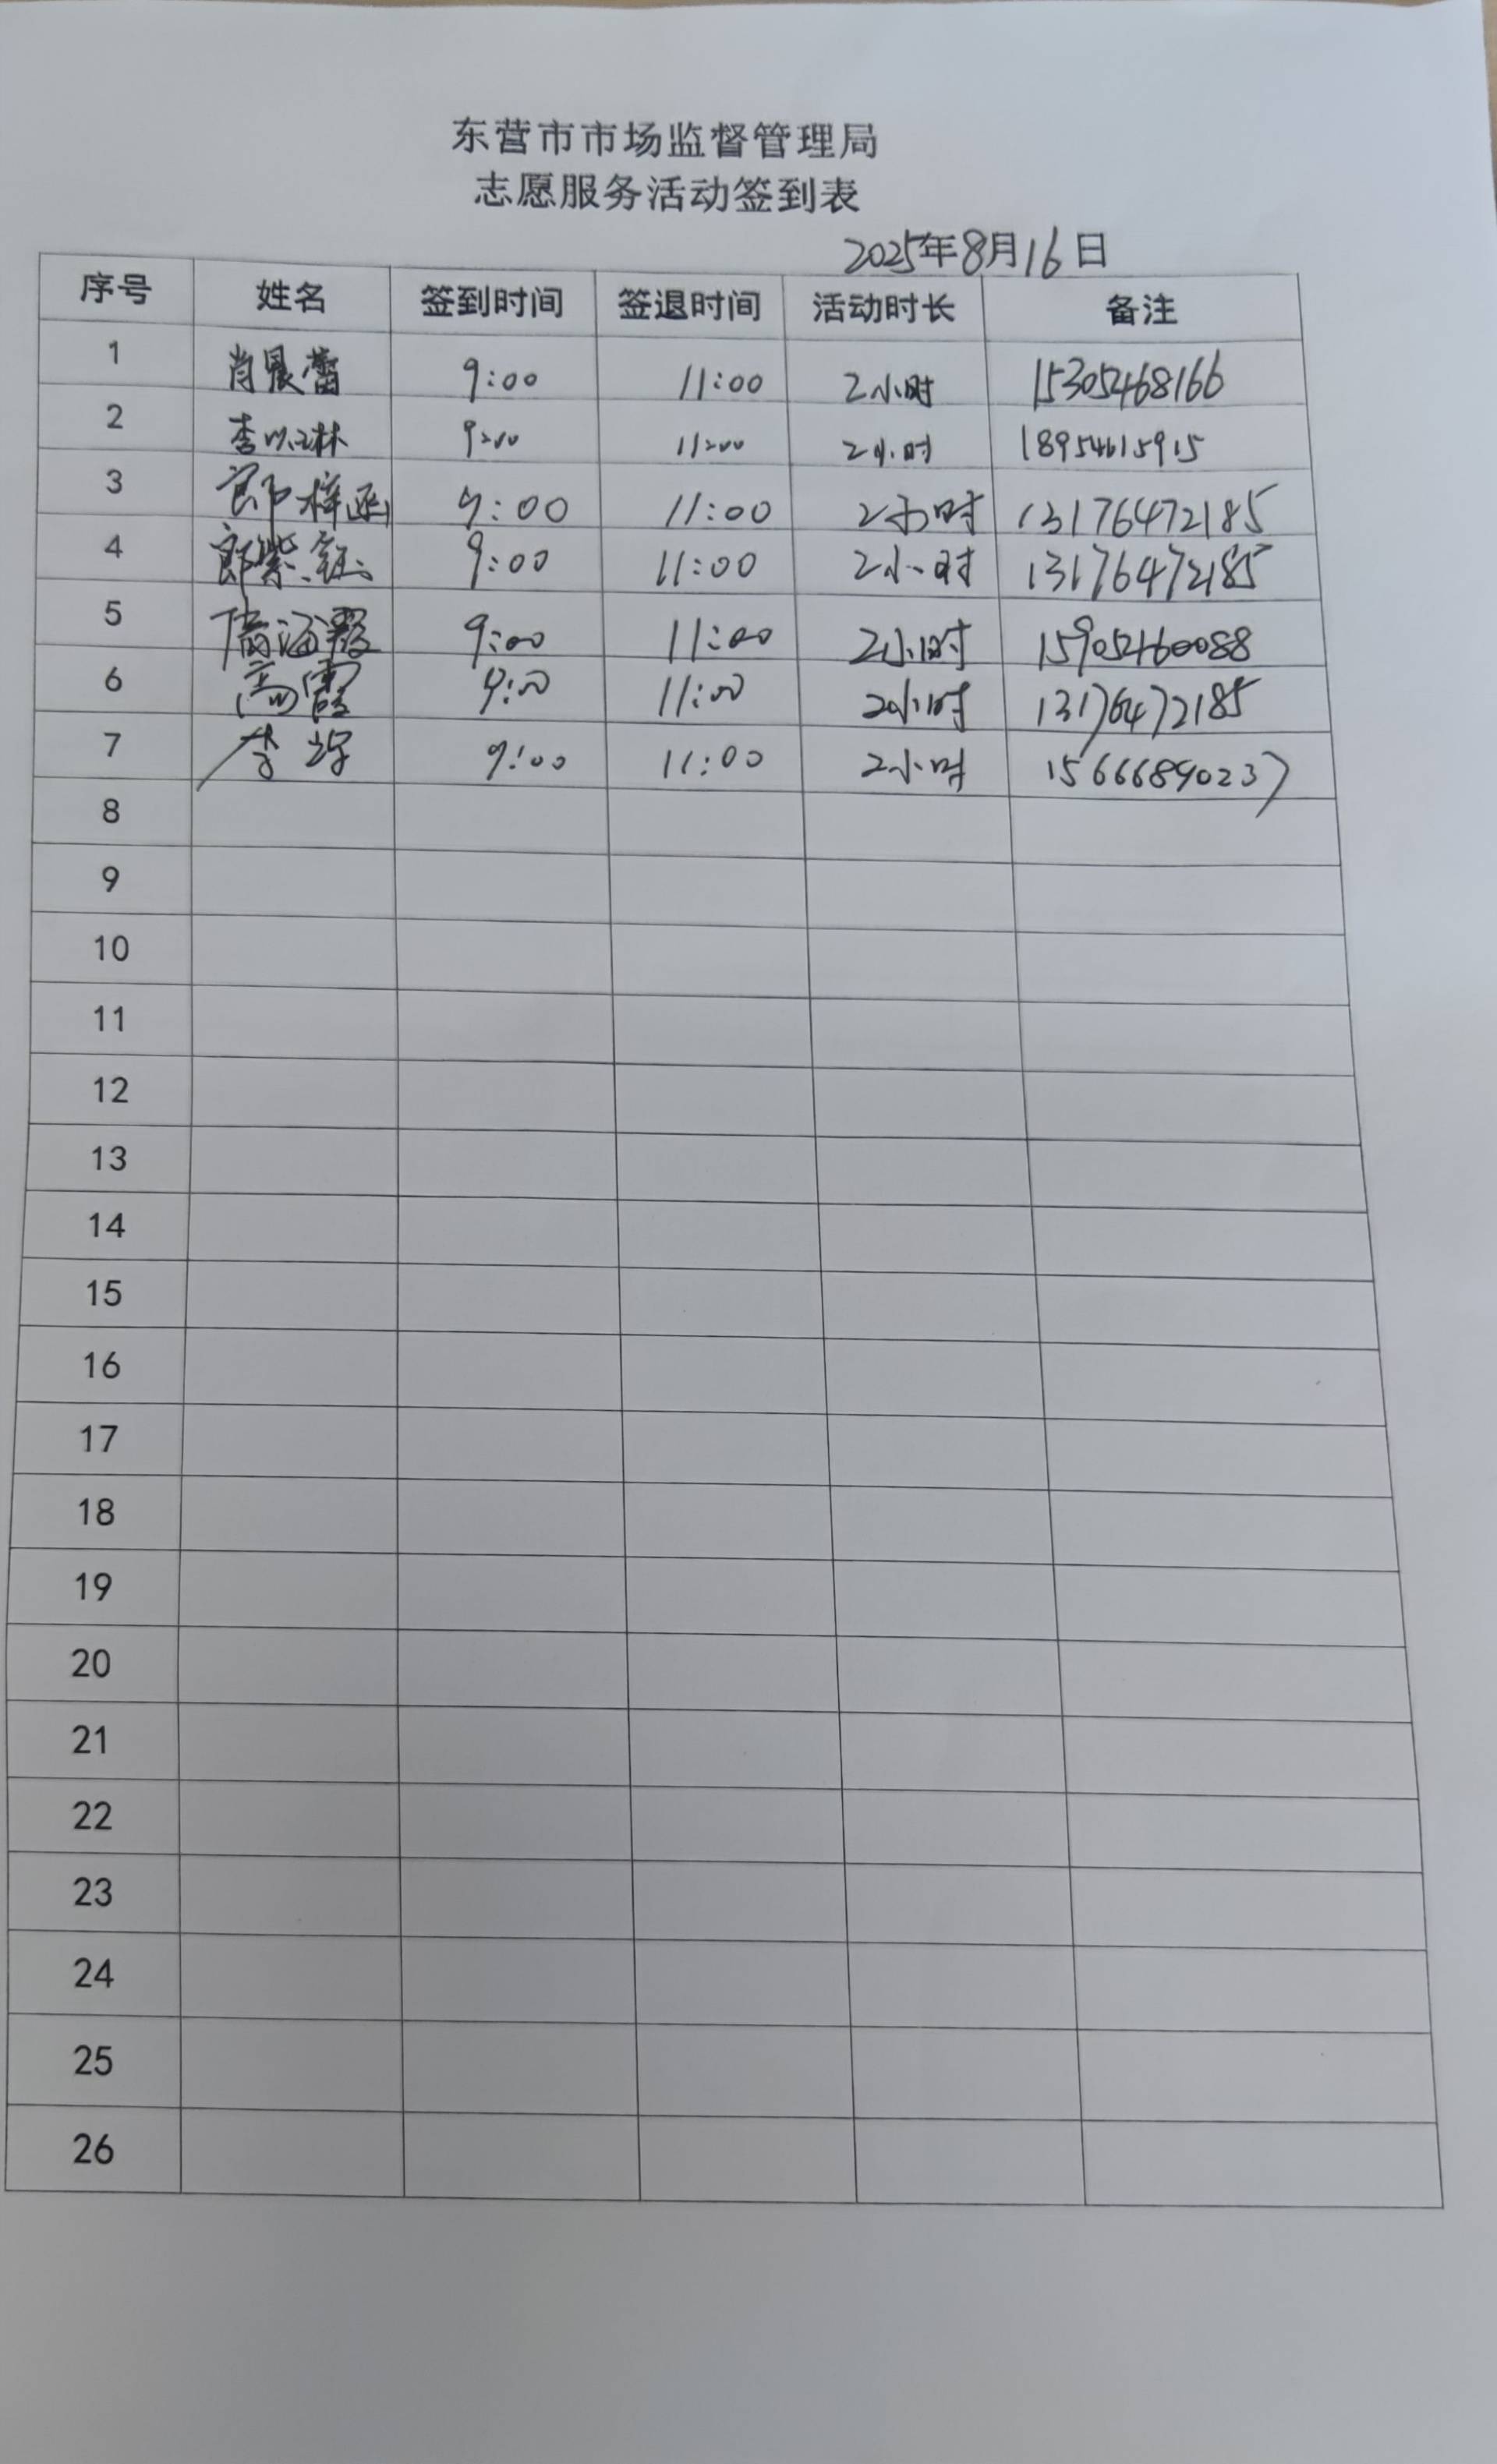 东营市市场监督管理局
志愿服务活动签到表
2025年8月16日
序号 姓名 签到时间 签退时间 活动时长 备注
1 肖晨蕾 9:00 11:00 2小时 15305468166
2 李以琳 9:00 11:00 2小时 18954615915
3 郎梓涵 9:00 11:00 2小时 13176472185
4 郎紫钰 9:00 11:00 2小时 13176472185
5 海霞 9:00 11:00 2小时 15905460088
6 高霞 9:00 11:00 2小时 13176472185
7 李 9:00 11:00 2小时 15666890237
8
9
10
11
12
13
14
15
16
17
18
19
20
21
22
23
24
25
26